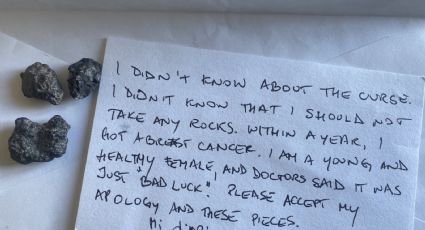 I DIDN'T KNOW ABOUT THE CURSE.
I DIDN'T KNOW THAT I SHOULD NOT
TAKE ANY ROCKS. WITHIN A YEAR, I
GOT A BREAST CANCER. I AM A YOUNG AND
HEALTHY FEMALE, AND DOCTORS SAID IT WAS
JUST "BAD LUCK". PLEASE ACCEPT MY
APOLOGY AND THESE PIECES.